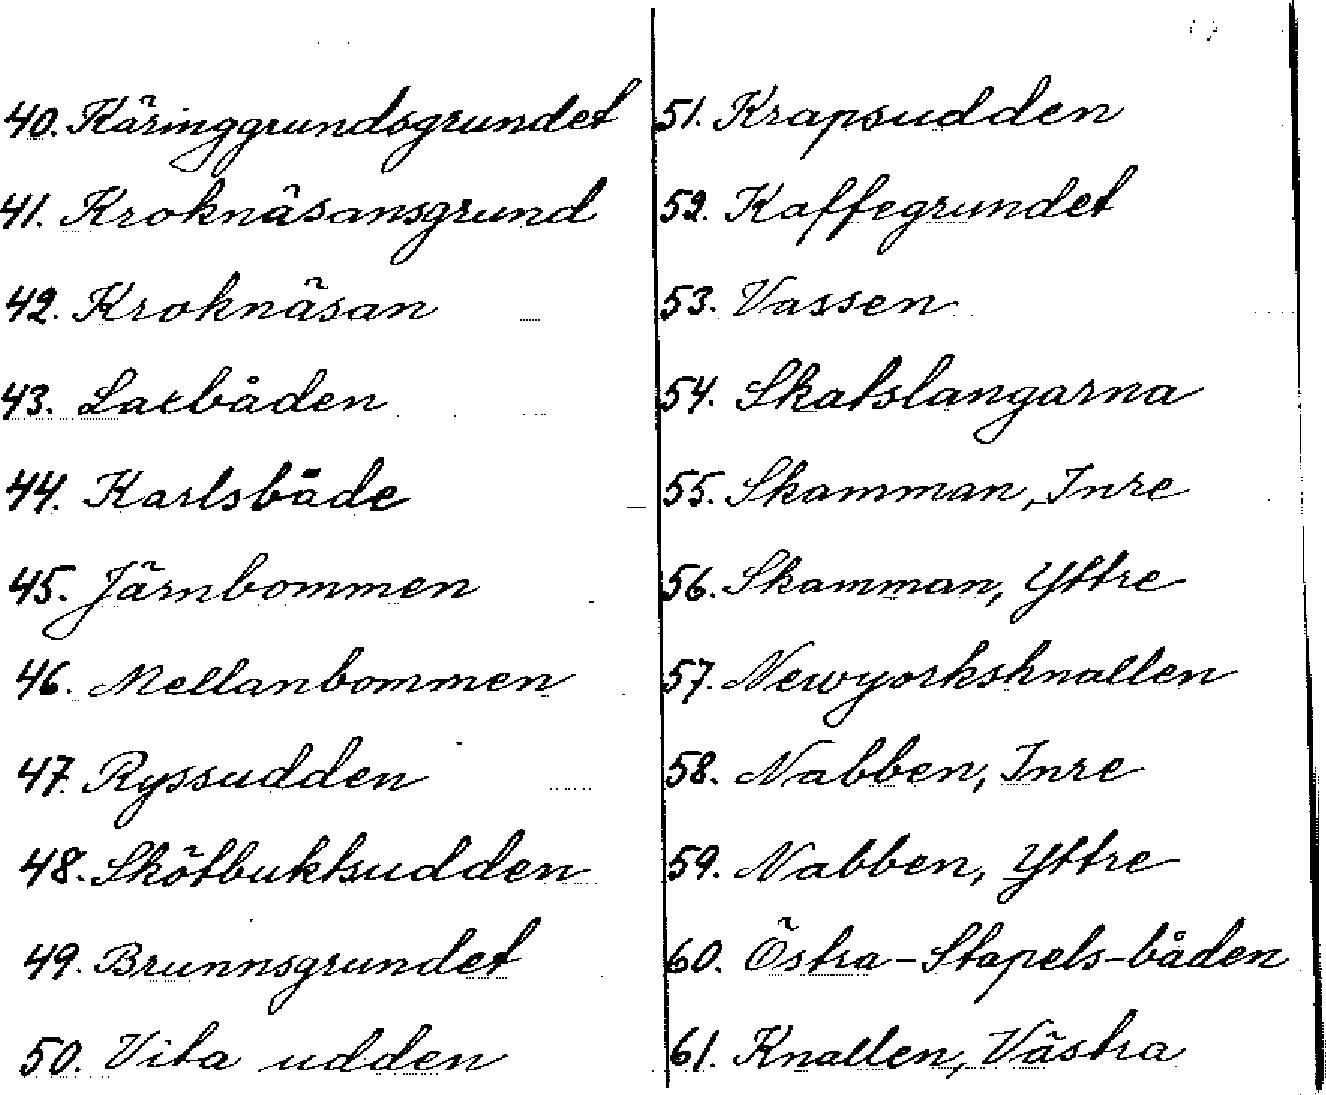 40. Käringgrundsgrundet
41. Kroknäsansgrund
42. Kroknäsan
43. Laxbåden
44. Karlsbåde
45. Järnbommen
46. Mellanbommen
47. Ryssudden
48. Skötbuktsudden
49. Brunnsgrundet
50. Vita udden
51. Krapsudden
52. Kaffegrundet
53. Vassen
54. Skatslangarna
55. Skamman, Inre
56. Skamman, Yttre
57. Newyorksknallen
58. Nabben, Inre
59. Nabben, Yttre
60. Östra-Stapels-båden
61. Knallen, Västra